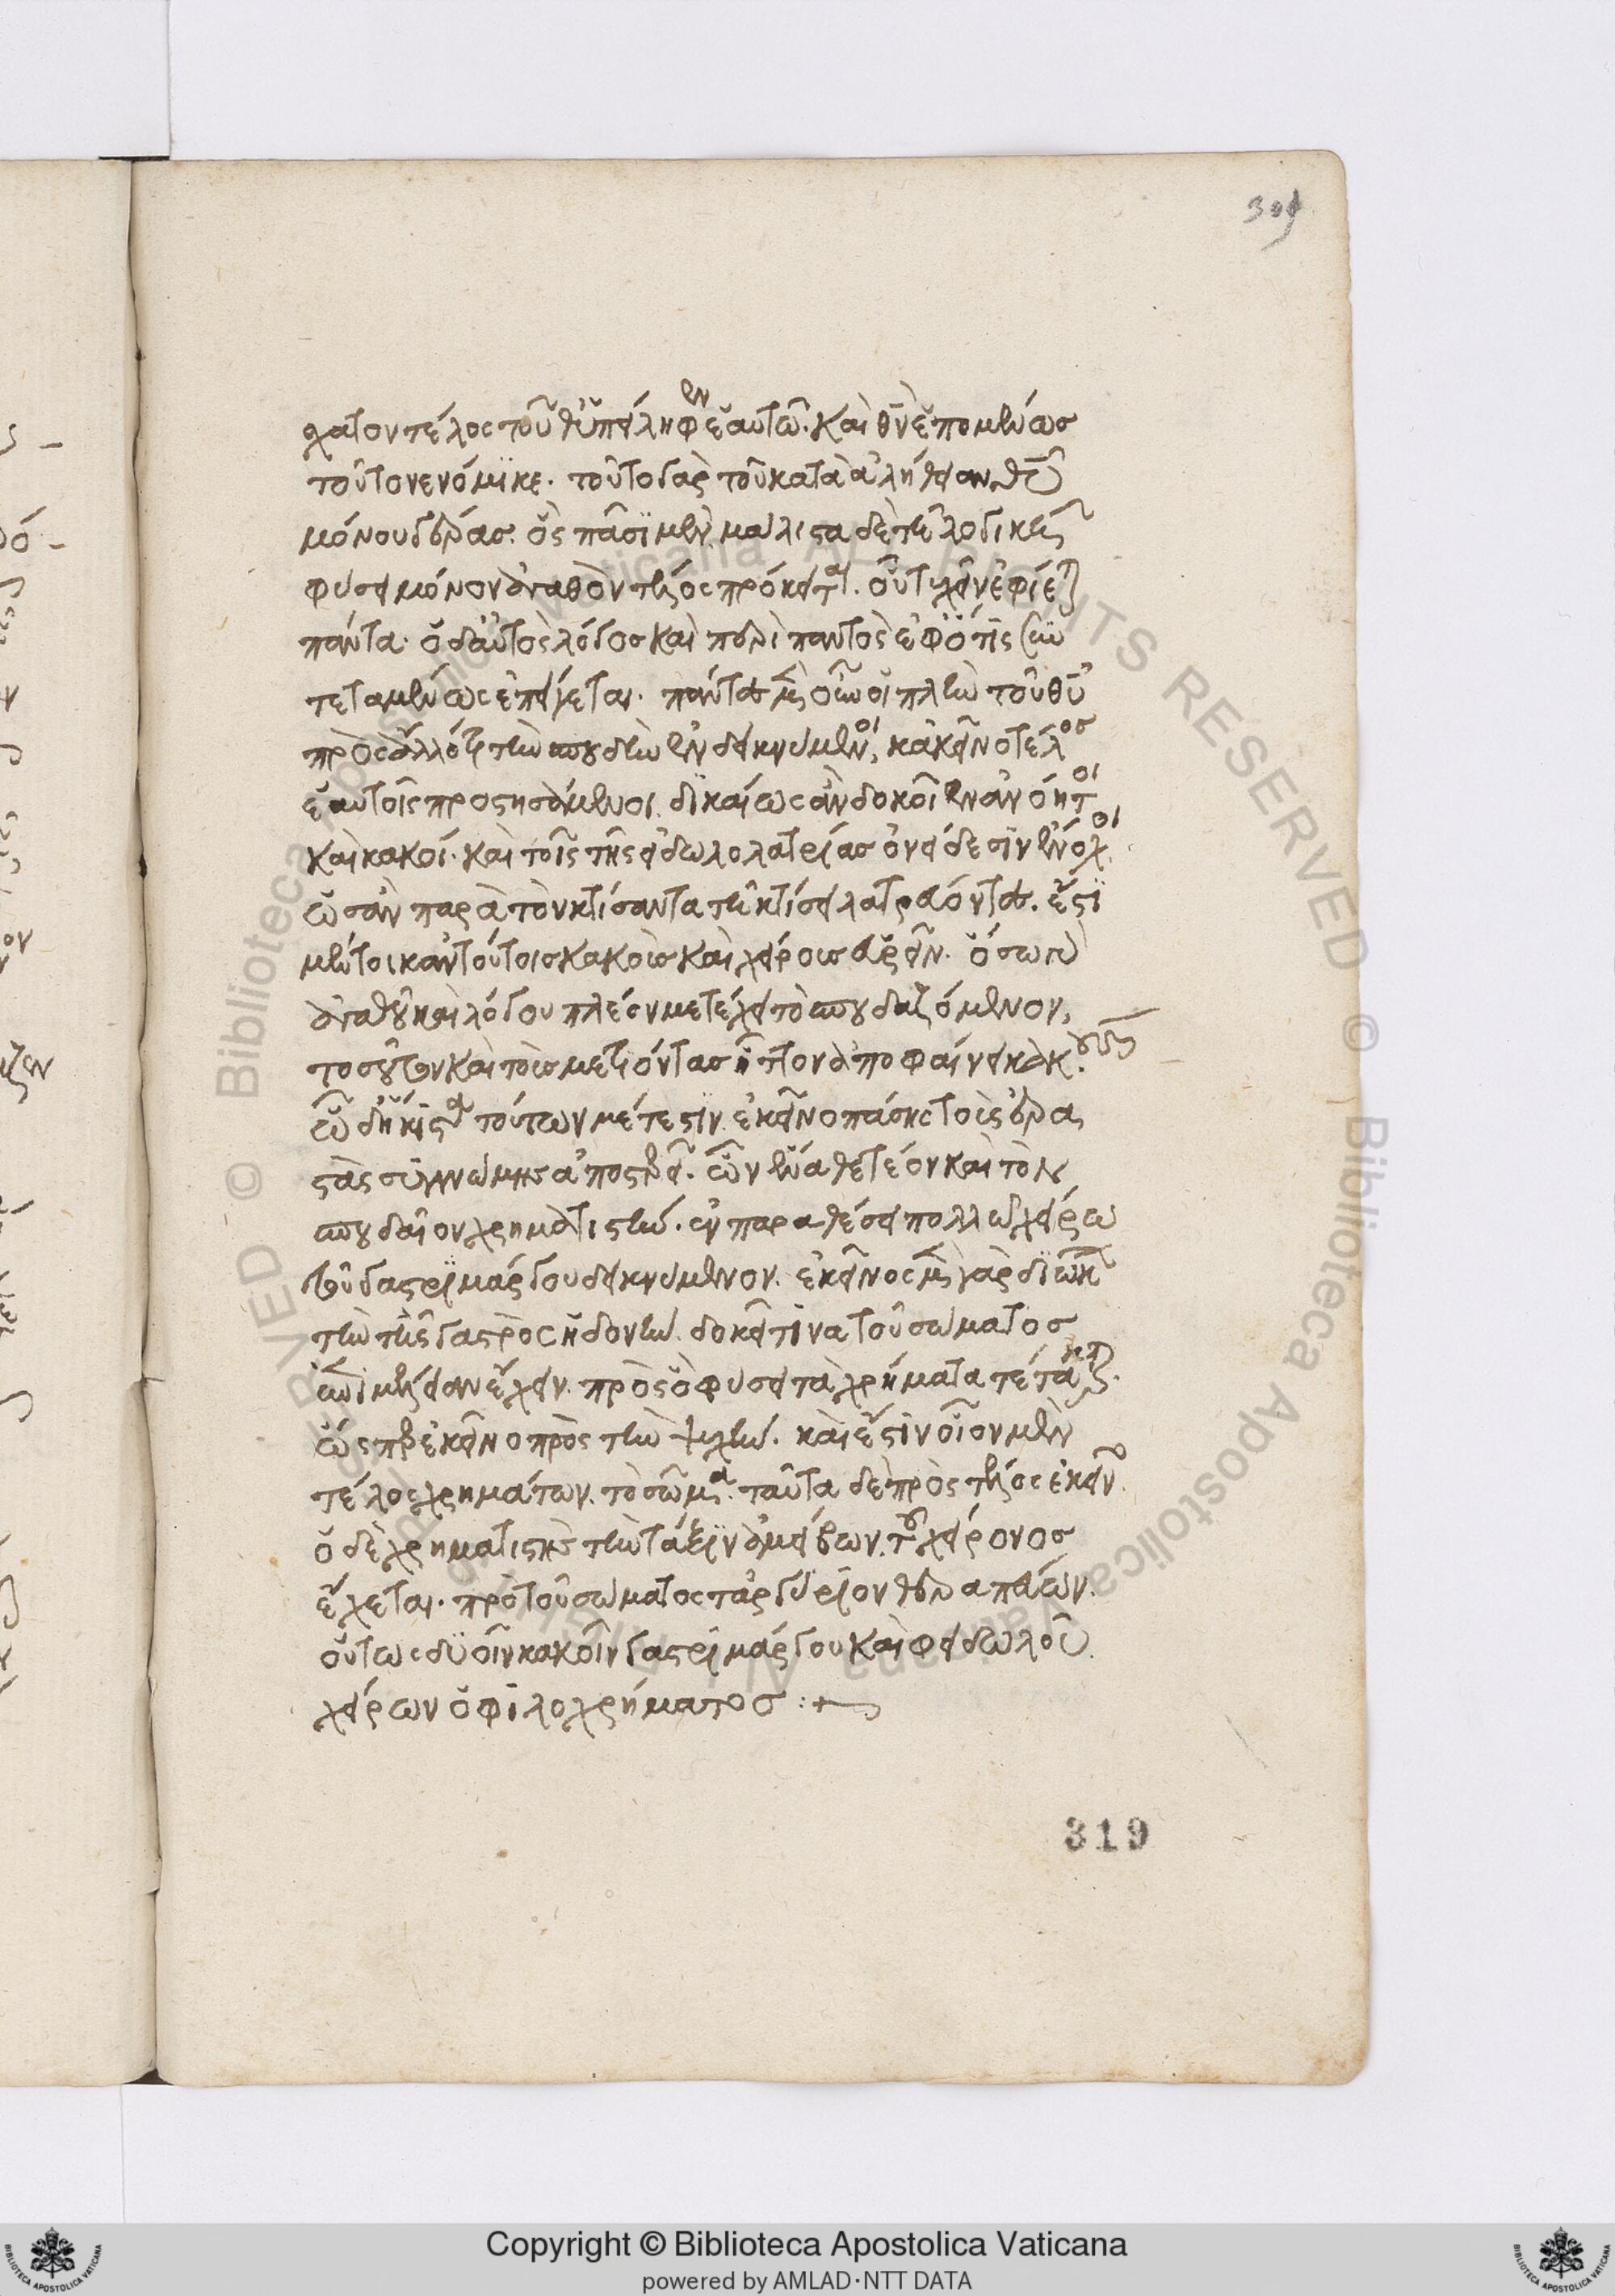 309
χατον τέλος τοῦ θῦ ὑπείληφεν ἑαυτῶ. καὶ θν̄ ἑπομένως
τοῦτο νενόμικε. τοῦτο γὰρ τοῦ κατὰ ἀλήθειαν θῦ
μόνου γέρας. ὃς πᾶσι μὲν μάλιστα δὲ τῆ λογικῆ
φύσει μόνον ἀγαθὸν τέλος πρόκειται. οὗ τυχεῖν ἐφίεται
πάντα. ὁ δ' αὐτὸς λόγος καὶ περὶ παντὸς ἐφ' ὅ τις
τεταμένως ἐπείγεται. πάντες μὲν οὖν οἱ πλὴν τοῦ θῦ
πρὸς ἄλλό τι τὴν σπουδὴν ἐνδεικνύμενοι, κἀκεῖνο τέλος
ἑαυτοῖς προστησάμενοι. δικαίως ἂν δοκοῖεν ἀνόητοι
καὶ κακοί. καὶ τοῖς τῆς εἰδωλολατρείας ὀνείδεσιν ἔνοχοι
ὡς ἂν παρὰ τὸν κτίσαντα τῆ κτίσει λατρεύοντες. ἔστι
μέντοι κἀν τούτοις κακοὺς καὶ χείρους εὑρεῖν. ὅσω
ἀγαθοῦ καὶ λόγου πλέον μετέχει τὸ σπουδαζόμενον,
τοσοῦτον καὶ τοὺς μετιόντας ἧττον ἀποφαίνει κακούς.
ὧ δ' ἥκιστα τούτων μέτεστιν. ἐκεῖνο πάσης τοὺς ἐρα
στὰς συγγνώμης ἀποστερεῖ. ὧν ἕνα θετέον καὶ τὸν
σπουδαῖον χρηματιστήν. ἐν παραθέσει πολλῶ χείρω
τοῦ γαστριμάργου δεικνύμενον. ἐκεῖνος μὲν γὰρ διώκων
τὴν τῆς γαστρὸς ἡδονήν. δοκεῖ τινα τοῦ σώματος
ἐπιμέλειαν ἔχειν. πρὸς ὃ φύσει τὰ χρήματα τέτακται.
ὥσπερ ἐκεῖνο πρὸς τὴν ψυχήν. καὶ ἔστιν οἷον μὲν
τέλος χρημάτων. τὸ σῶμα. ταῦτα δὲ πρὸς τέλος ἐκεῖνο.
ὁ δὲ χρηματιστὴς τὴν τάξιν ἀμείβων. τοῦ χείρονος
ἔχεται. πρὸ τοῦ σώματος τἀργύριον θεραπεύων.
οὕτως δυοῖν κακοῖν γαστριμάργου καὶ φειδωλοῦ
χείρων ὁ φιλοχρήματος :+
319
Copyright © Biblioteca Apostolica Vaticana
powered by AMLAD·NTT DATA